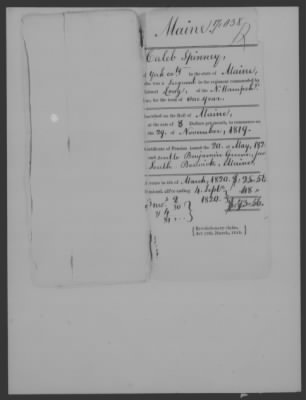 Maine
Caleb Spinney,
York coty in the state of Maine,
who was a Sergeant in the regiment commanded by
Colonel Long, of the N. Hampsh.
line, for the term of One year.
Inscribed on the Roll of Maine,
at the rate of 8 Dollars per month, to commence on
the 29. of November, 1819.
Certificate of Pension issued the 20. of May, 182
and sent to Benjamin Greene,
South Berwick, Maine
of March, 1820. $ 25.56
ending 4. Sept. 1820. 48
$ 73.56
Revolutionary claim,
Act 18th March, 1818.